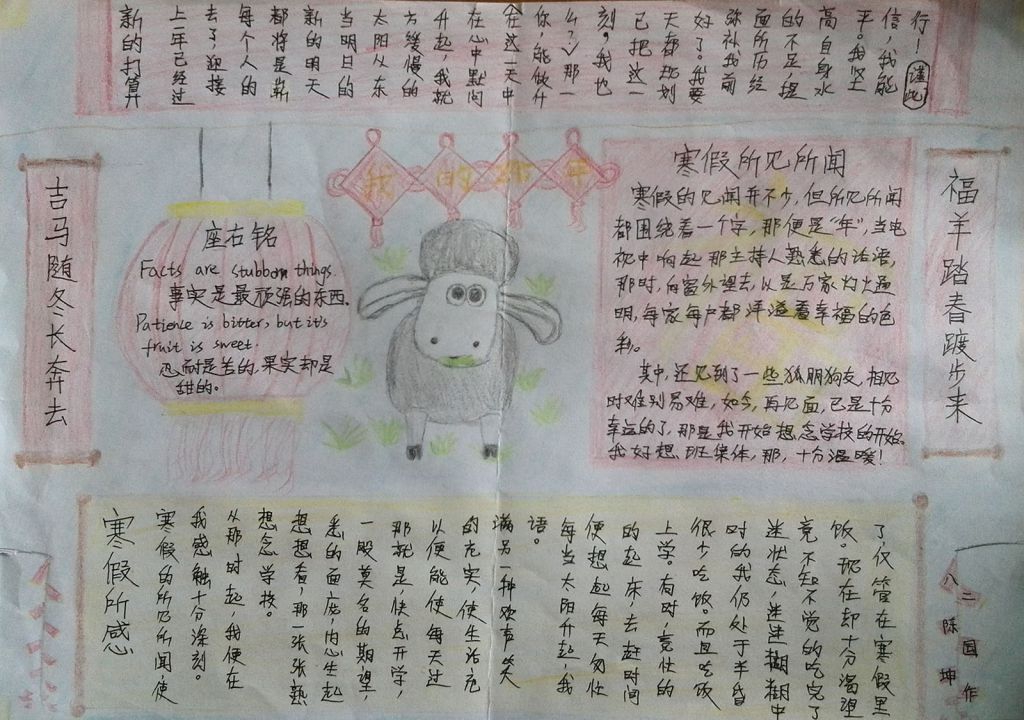 新的打算
上一年已经过
去了，迎接
每个人的
都将是崭
新的明天
当明日的
太阳从东
方缓慢的
升起，我就
在心中默问
在这一天中
你，能做什
么？那一
刻。我也
已把这一
天都规划
好了。我要
弥补我前
面所历经
的不足，提
高自身水
平。我坚
信，我能
行！谨此
吉马随冬长奔去
座右铭
Facts are stubborn things.
事实是最顽强的东西.
Patience is bitter, but it's
fruit is sweet.
忍耐是苦的,果实却是
甜的。
我的作
寒假所见所闻
寒假的见闻并不少，但所见所闻
都围绕着一个字，那便是“年”，当电
视中响起那主持人熟悉的话语，
那时，向窗外望去，以是万家灯火通
明，每家每户都洋溢着幸福的色
彩。
其中，还见到了一些狐朋狗友，相见
时难别易难，如今，再见面，已是十分
幸运的了，那是我开始想念学校的开始。
我好想班集体，那，十分温暖！
福羊踏春踱步来
寒假所感
寒假的所见所闻，使
我感触十分深刻。
从那时起，我便在
想念学校。
想想看，那一张张熟
悉的面庞，内心生起
一股莫名的期望，
那就是，快点开学，
以便能使每天过
的充实，使生活充
满另一种欢声笑
语。
每当太阳升起，我
便想起每天匆忙
的起床，去赶时间
上学。有时，竟忙的
很少吃饭。而且吃饭
时的我仍处于半昏
迷状态，迷迷糊糊中
竟不知不觉的吃完了
饭。现在却十分渴望
了，仅管在寒假里
八二
陈国坤
作